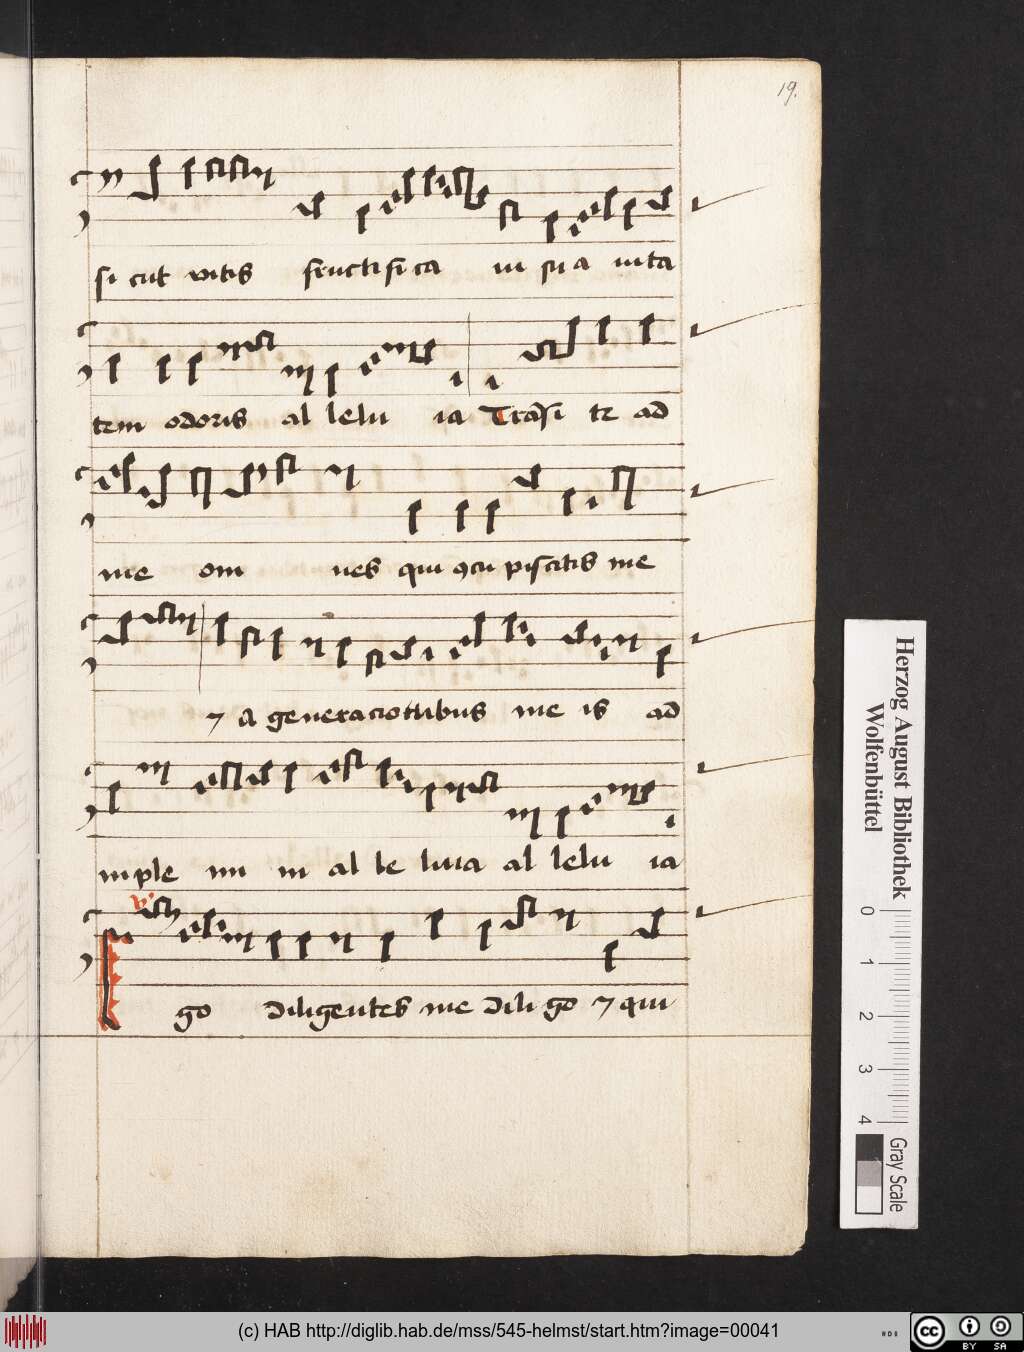 19.
si cut vitis fructifi ca in su a uita
tem odoris al lelu ia Tra͞si te ad
me om nes qui ꝯcu piscitis me
⁊ a generacionibus me is ad
imple mi ni al le luia al lelu ia
v̓
E go diligentes me dili go ⁊ qui
Herzog August Bibliothek
Wolfenbüttel
0 1 2 3 4
Gray Scale
(c) HAB http://diglib.hab.de/mss/545-helmst/start.htm?image=00041
cc BY SA